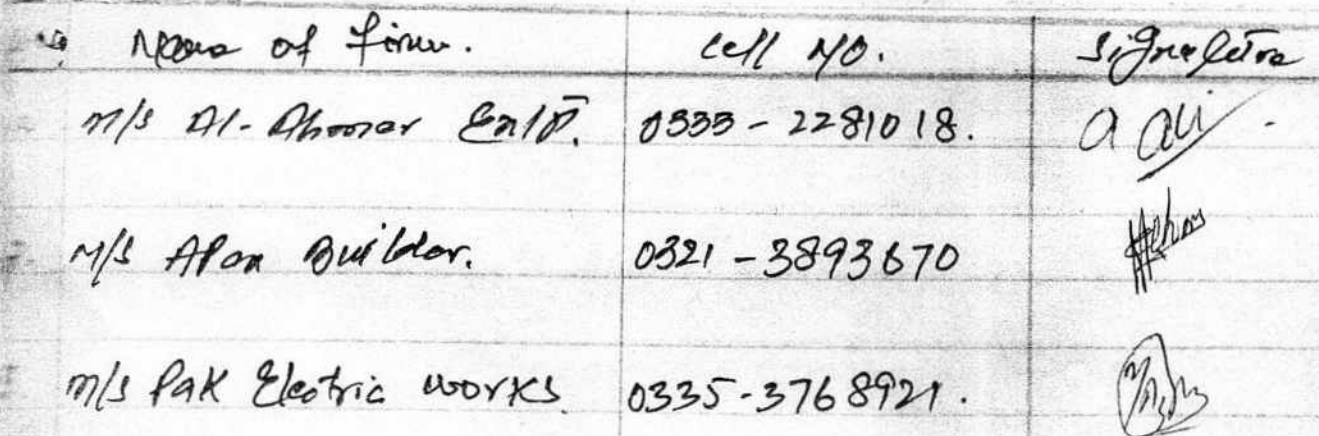 Name of Firm. Cell NO. Signature
M/S Al-Ahmar Entp. 0333-2281018.
M/S Builder. 0321-3893670
M/S Pak Electric works 0335-3768921.